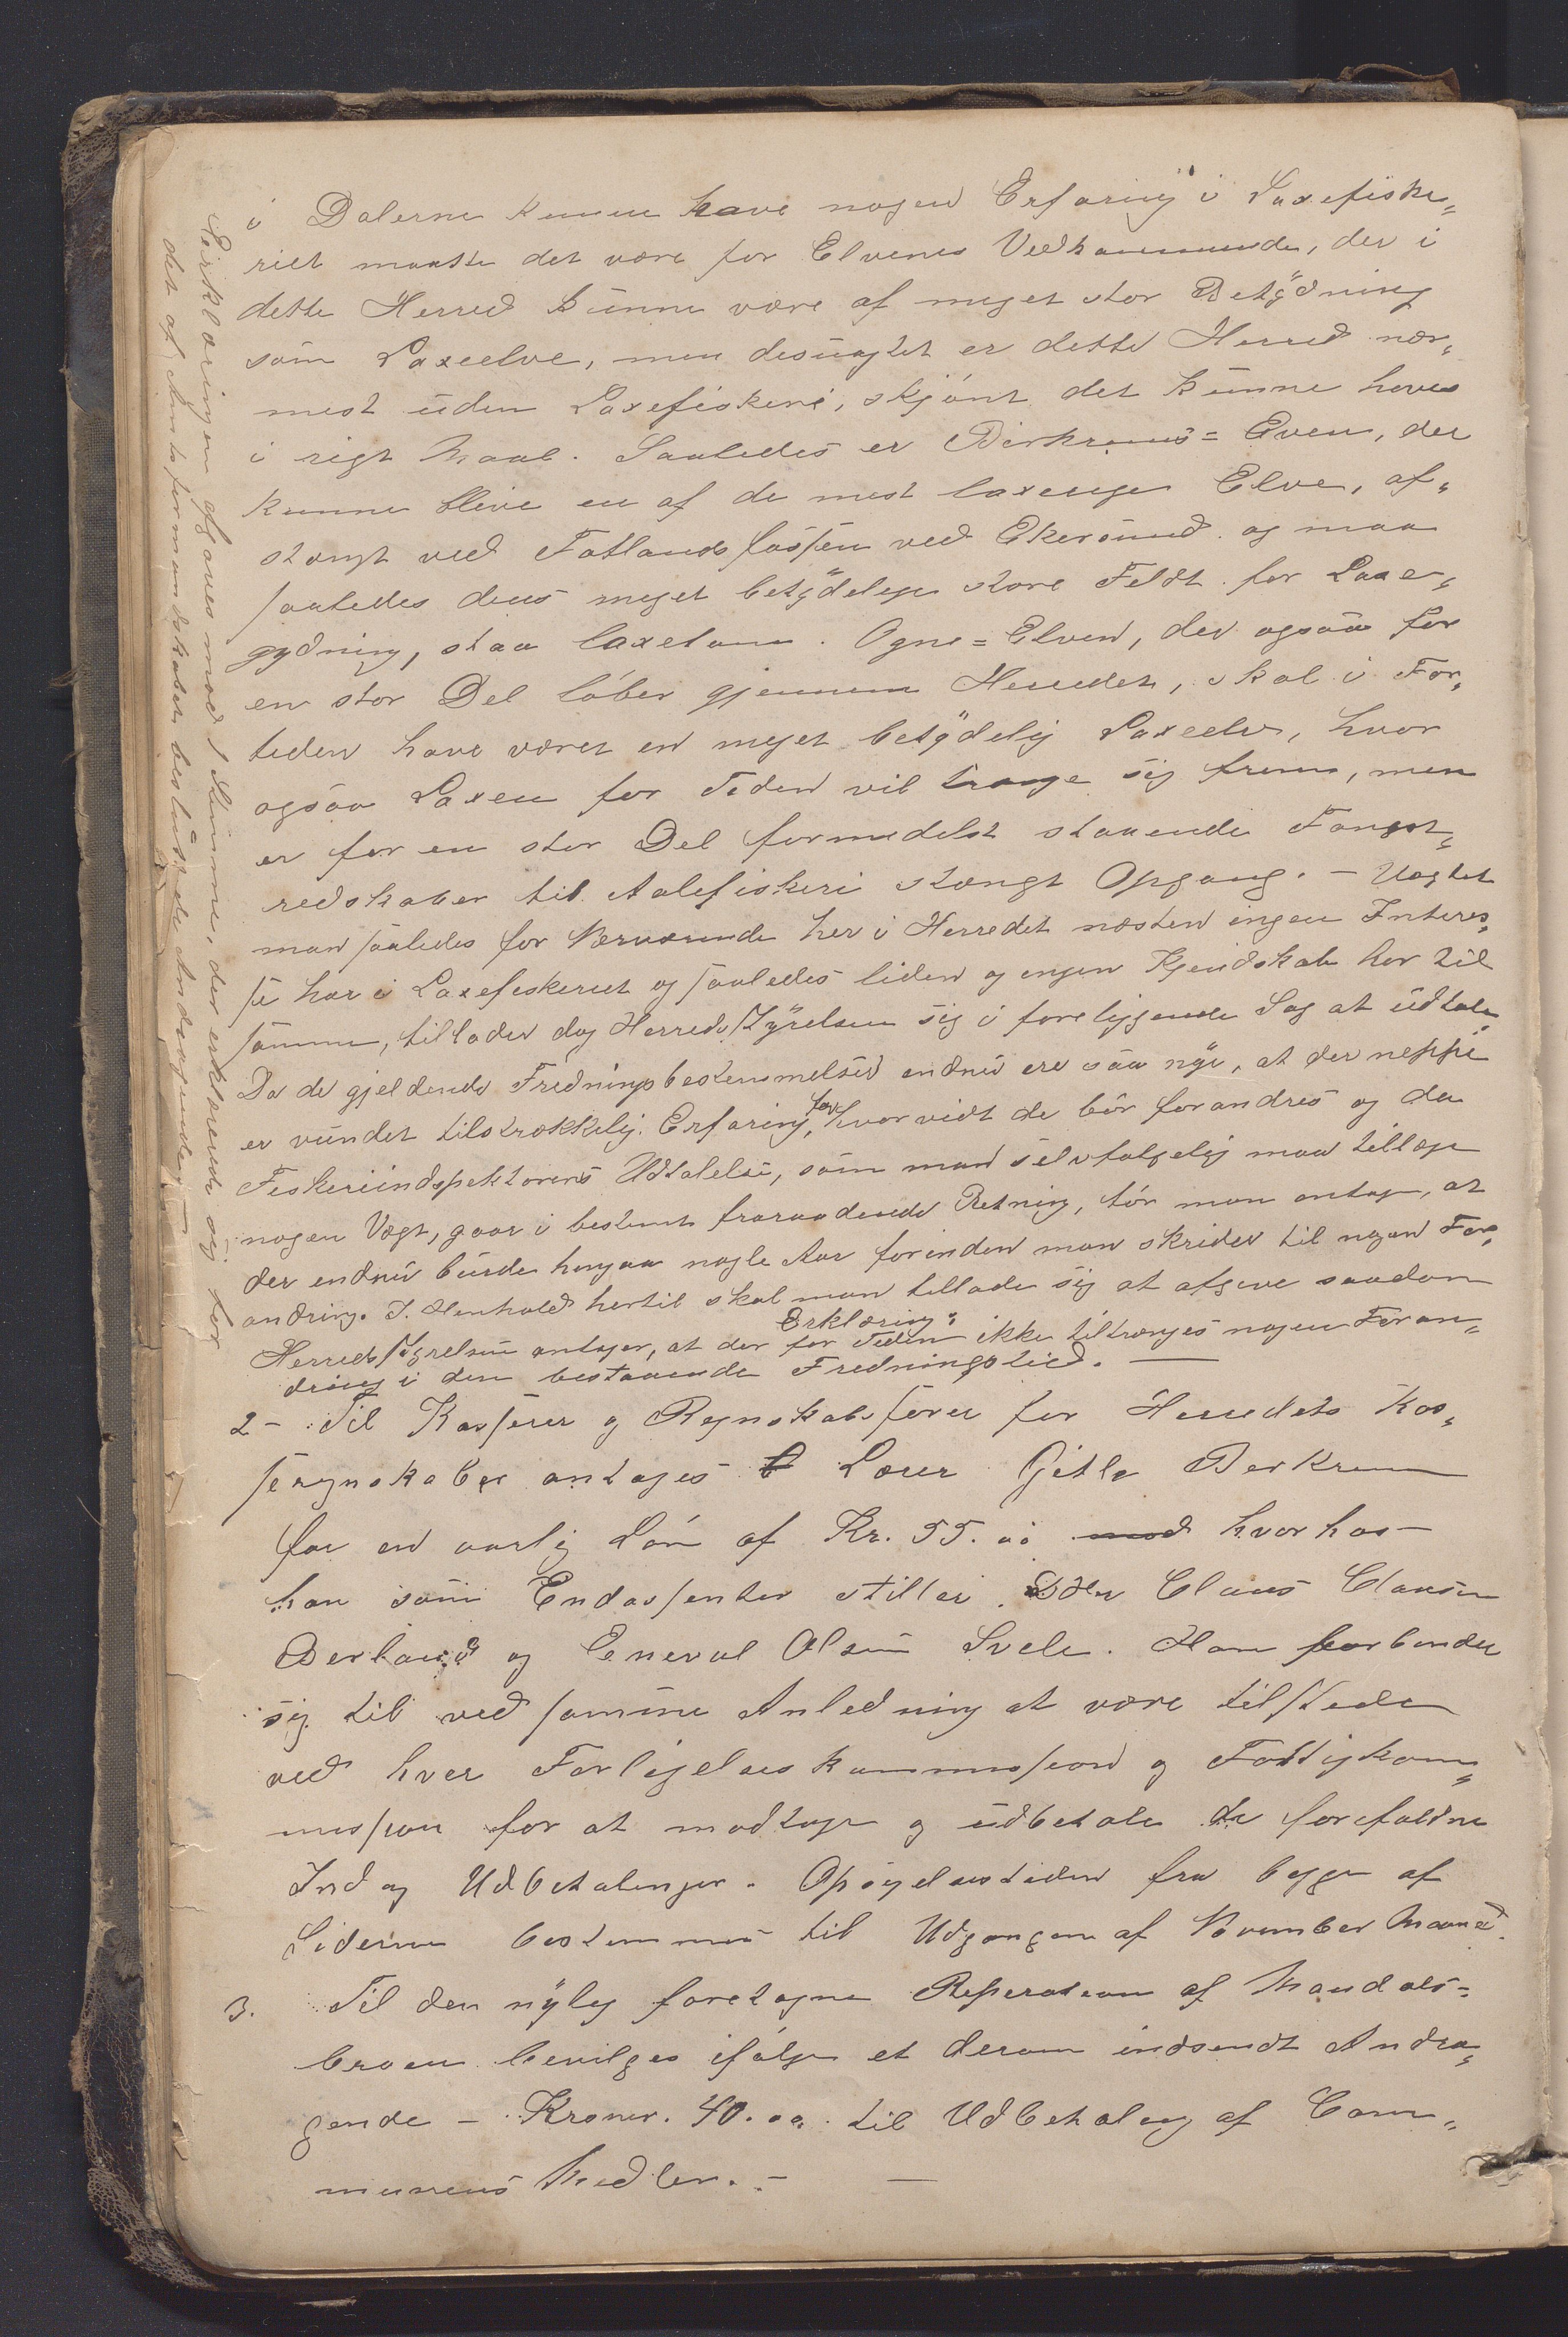 i Dalerne kunne have nogen Erfaring i Laxefiske„
riet maatte det være for Elvenes Vedkommende, der i
dette Herred kunne være af meget stor Betydning
som Laxeelve, men desuagtet er dette Herred nær„
mest uden Laxefiskeri, skjønt det kunne haves
i rigt Maal. Saaledes er Birkrems=Elven, der
kunne blive en af de mest laxerige Elve, af„
stængt ved Fotlandsfossen ved Ekersund og maa
saaledes dens meget betydelige store Feldt for Laxe„
gydning, staa laxetom. Ogne=Elven, der ogsaa for
en stor Del løber gjennem Herredet, skal i For„
tiden have været en meget betydelig Laxeelv, hvor
ogsaa Laxen for Tiden vil trænge sig frem, men
er for en stor Del formedelst staaende Fangst„
redskaber til Aalefiskeri stængt Opgang. – Uagtet
man saaledes for Nærværende her i Herredet næsten ingen Interes„
se har i Laxefiskeriet og saaledes liden og ingen Kjendskab har til
samme, tillader dog Herredsstyrelsen sig i foreliggende Sag at udtale
Da de gjeldende Fredningsbestemmelser endnu ere saa nye, at der neppe
er vundet tilstrækkelig Erfaring, for hvorvidt de bør forandres og da
Fiskeriindspektørens Udtalelse, som man selvfølgelig maa tillægge
nogen Vægt, gaar i bestemt fraraadende Retning, tør man antage, at
der endnu burde hengaa nogle Aar forinden man skrider til nogen For„
andring. I Henhold hertil skal man tillade sig at afgive saadan
Erklæring:
Herredsstyrelsen antager, at der for Tiden ikke tiltrænges nogen Foran„
dring i den bestaaende Fredningstid. —
2 – Til Kasserer og Regnskabsfører for Herredets Kas„
seregnskaber antages Lærer Gitle Berkrem
for en aarlig Løn af Kr. 55.00 mod hvorhos
han som Endossenter stiller Claus Clausen
Berland og Enevol Olsen Svele. Han forbinder
sig til ved samme Anledning at være tilstede
ved hver Forligelseskommission og Fattigkom„
mission for at modtage og udbetale de forefaldne
Ind og Udbetalinger. Opsigelsestiden fra begge af
Siderne bestemmes til Udgangen af November Maaned.
3. Til den nylig foretagne Reperation af Maudals=
broen bevilges ifølge et derom indsendt Andra„
gende – Kroner. 40.00 til Udbetaling af Com„
munens Midler. – —
Erklæringen afgaves mod 1 Stemme, der erklærede sig for
det af Amtsformandskabet besluttede Andragende